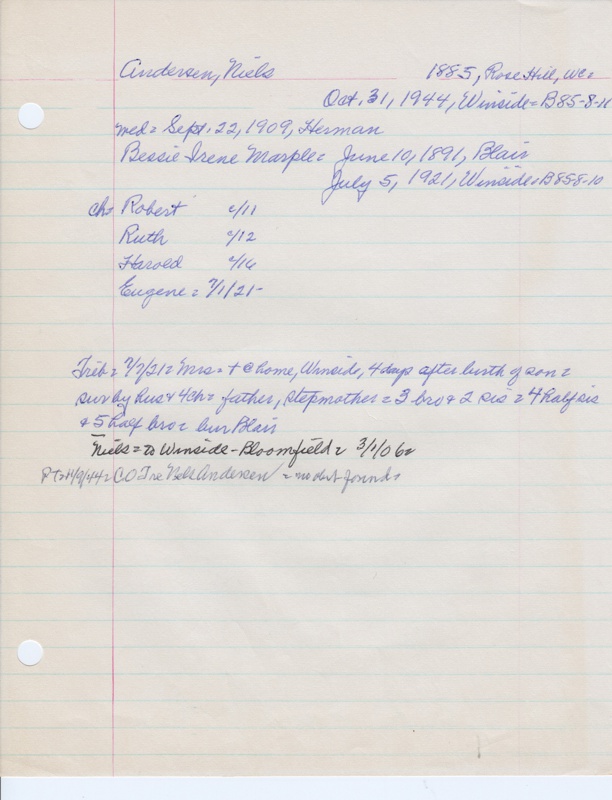 Andersen, Niels 1885, Rose Hill, WC=
Oct. 31, 1944, Winside= B85-8-10
med= Sept. 22, 1909, Herman
Bessie Irene Marple= June 10, 1891, Blair
July 5, 1921, Winside= B85-8-10
ch= Robert c/11
Ruth c/12
Harold c/16
Eugene= 7/1/21-
Trib= 7/7/21= Mrs= + @ home, Winside, 4 days after birth of son=
sur by hus & 4 ch= father, stepmother= 3 bro & 2 sis= 4 half sis
& 5 half bro= bur Blair
Niels= to Winside - Bloomfield= 3/1/06=
CO Tre Nels Andersen = no dest found=